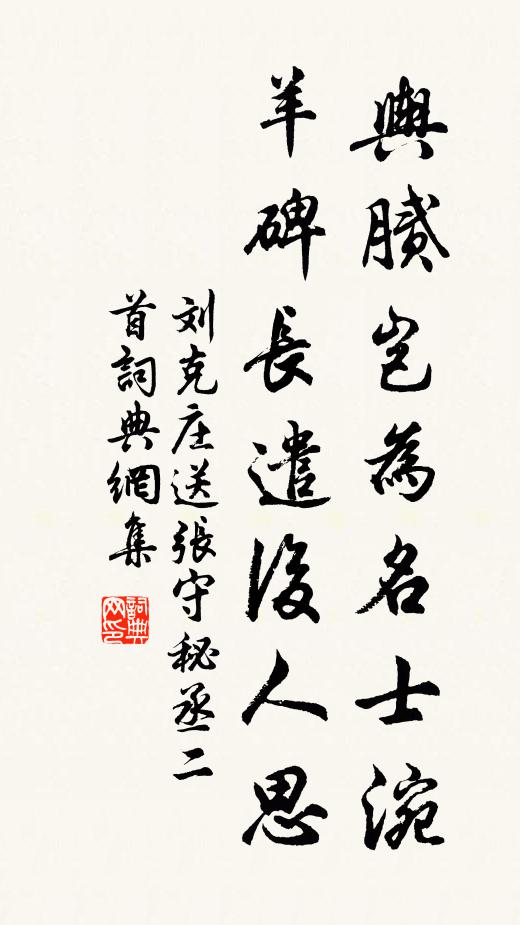 輿膩豈為名士涴
羊碑長遣後人思
刘克庄送張守秘丞二
首詞典網集
詞典
网印